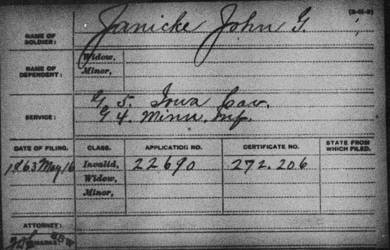 (3-45-0)
NAME OF SOLDIER: Janicke John G.
NAME OF DEPENDENT: Widow,
Minor,
SERVICE: G, 5. Iowa Cav.
G 4. Minn. Inf.
DATE OF FILING. CLASS. APPLICATION NO. CERTIFICATE NO. STATE FROM WHICH FILED.
1863 May 16 Invalid, 22690 272.206
Widow,
Minor,
ATTORNEY:
REMARKS: